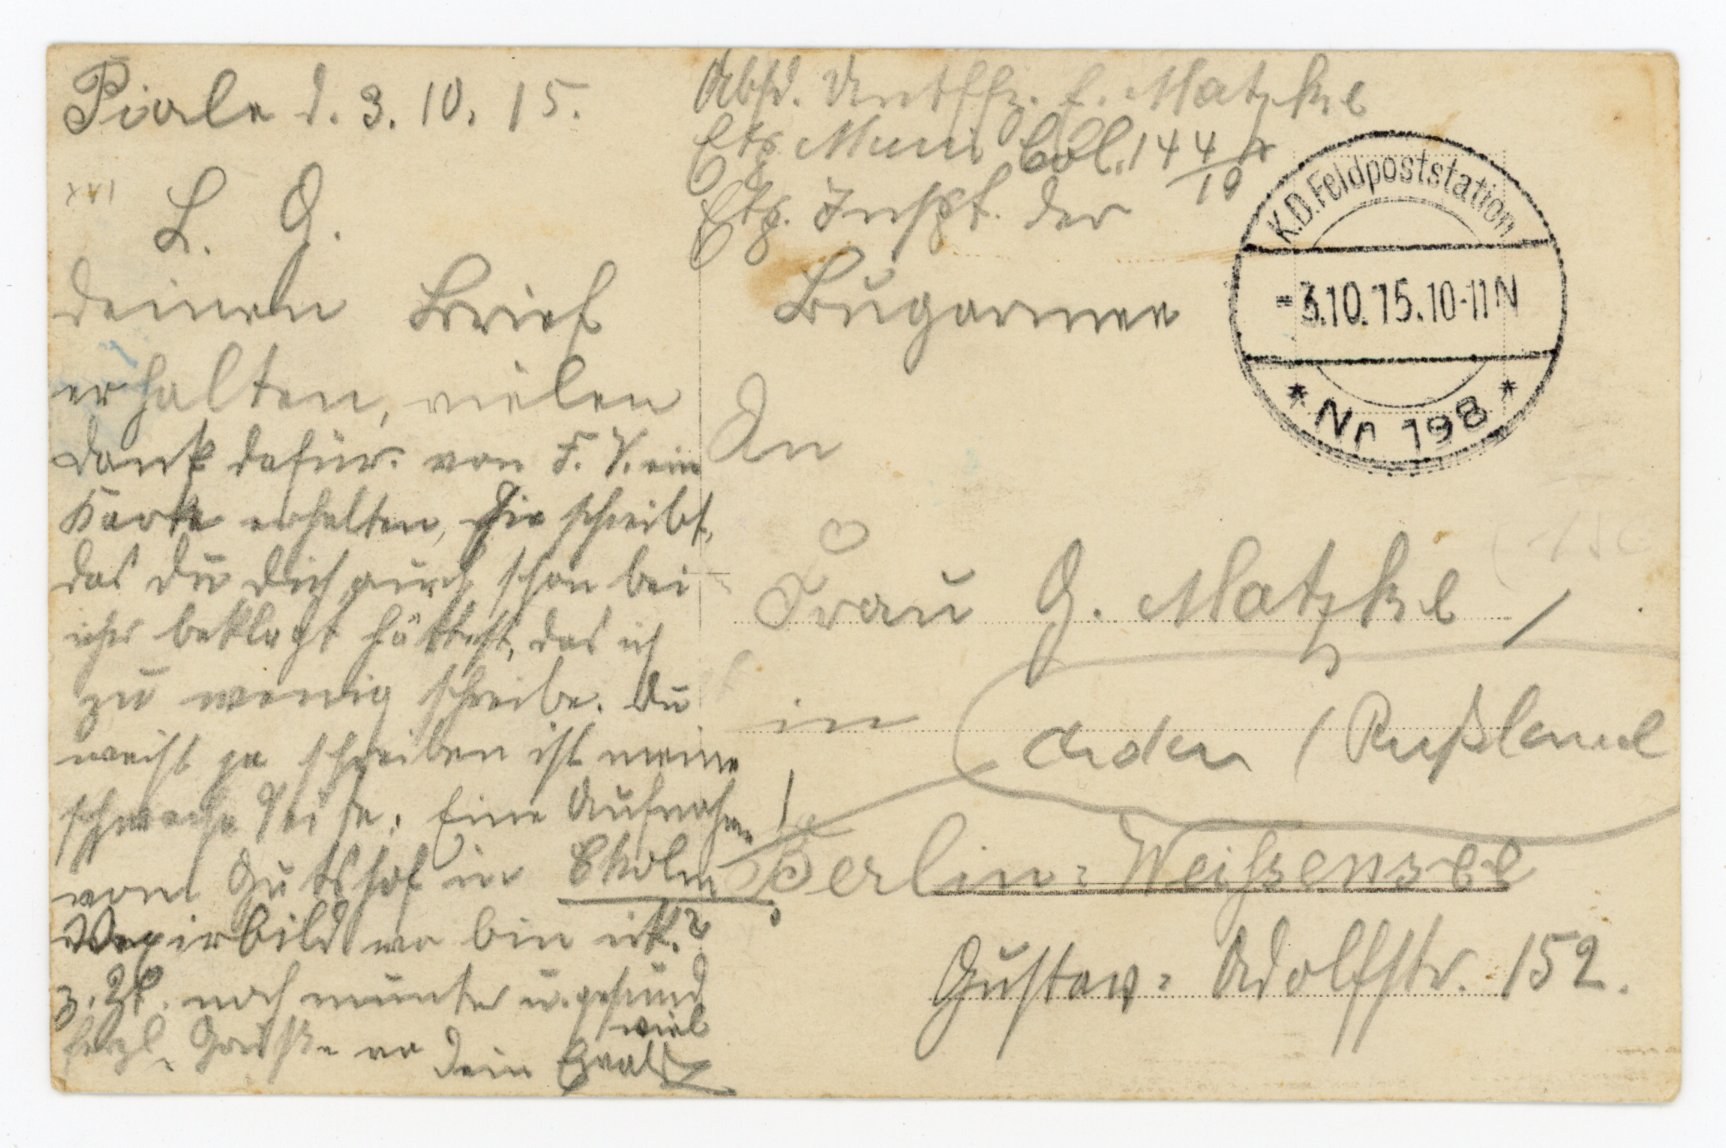 d. 3. 10. 15.
L. G.
deinen Brief
erhalten, vielen
Dank dafür. von F. V. ein
Karte erhalten, Sie schreibt,
das du dich auch schon bei
ihr beklagt hättest, das ich
zu wenig schreibe. Du
weist ja schreiben ist meine
schwache Seite. Eine Aufnahme
vom Gutshof in Cholm
Vexirbild wo bin ick?
z. Zt. noch munter u. gesund
herzl. Grüße dein
viel
Absd. Untffz. E. Matzke
Etp. Muni Col. 144
10
Etp. Inspt. der
Bugarmee
K.D. Feldpoststation
3.10.15.10-11N
* Nr. 198 *
An
Frau G. Matzke
in
/ Rußland
Berlin-Weissensee
Gustav-Adolfstr. 152.